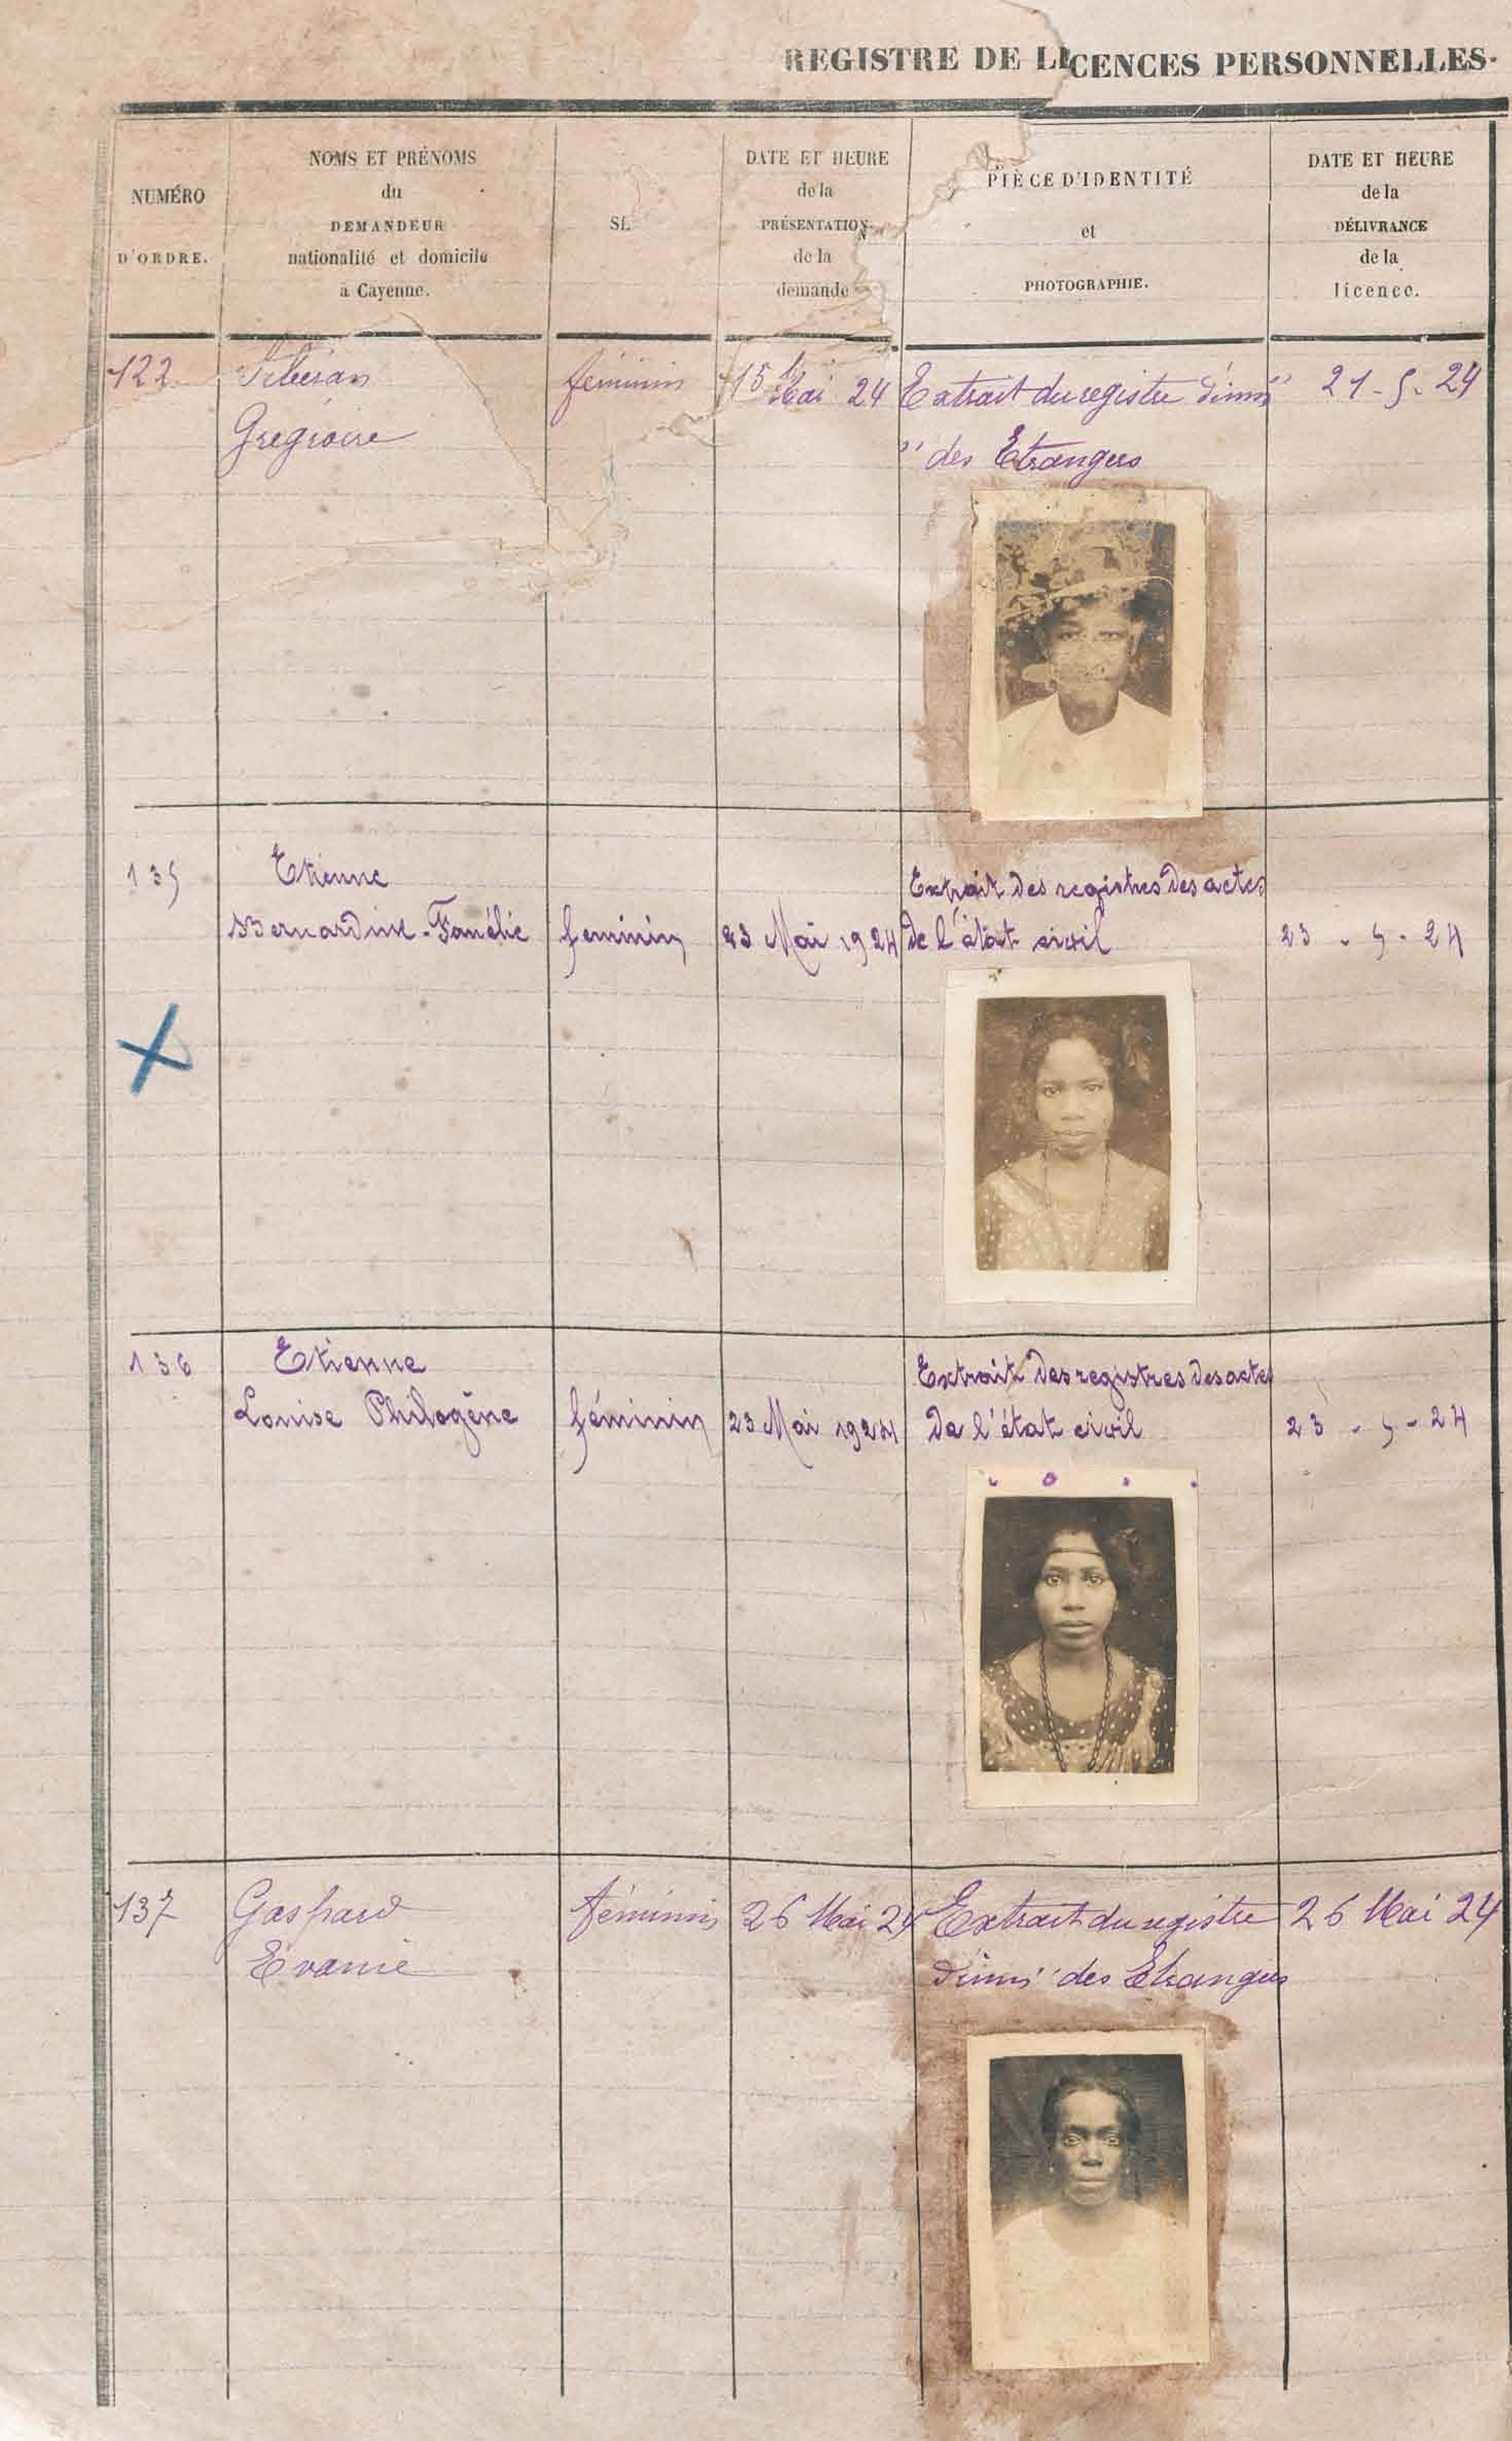 REGISTRE DE LICENCES PERSONNELLES-
NUMÉRO
D'ORDRE.
NOMS ET PRÉNOMS
du
DEMANDEUR
nationalité et domicile
à Cayenne.
SE
DATE ET HEURE
de la
PRÉSENTATION
de la
demande
PIÈCE D'IDENTITÉ
et
PHOTOGRAPHIE.
DATE ET HEURE
de la
DÉLIVRANCE
de la
licence.
122
Grégroire
féminin
15 Mai 24
Extrait du registre d'imm
" des Etrangers
21-5-24
135
Etienne
Bernardine-Fanélie
feminin
23 Mai 1924
Extrait des registres des actes
de l'état civil
23 - 5 - 24
X
136
Etienne
Louise Philogène
féminin
23 Mai 1924
Extrait des registres des actes
de l'état civil
23 - 5 - 24
137
Gaspard
Evanie
féminin
26 Mai 24
Extrait du registre
d'imm" des Etrangers
26 Mai 24